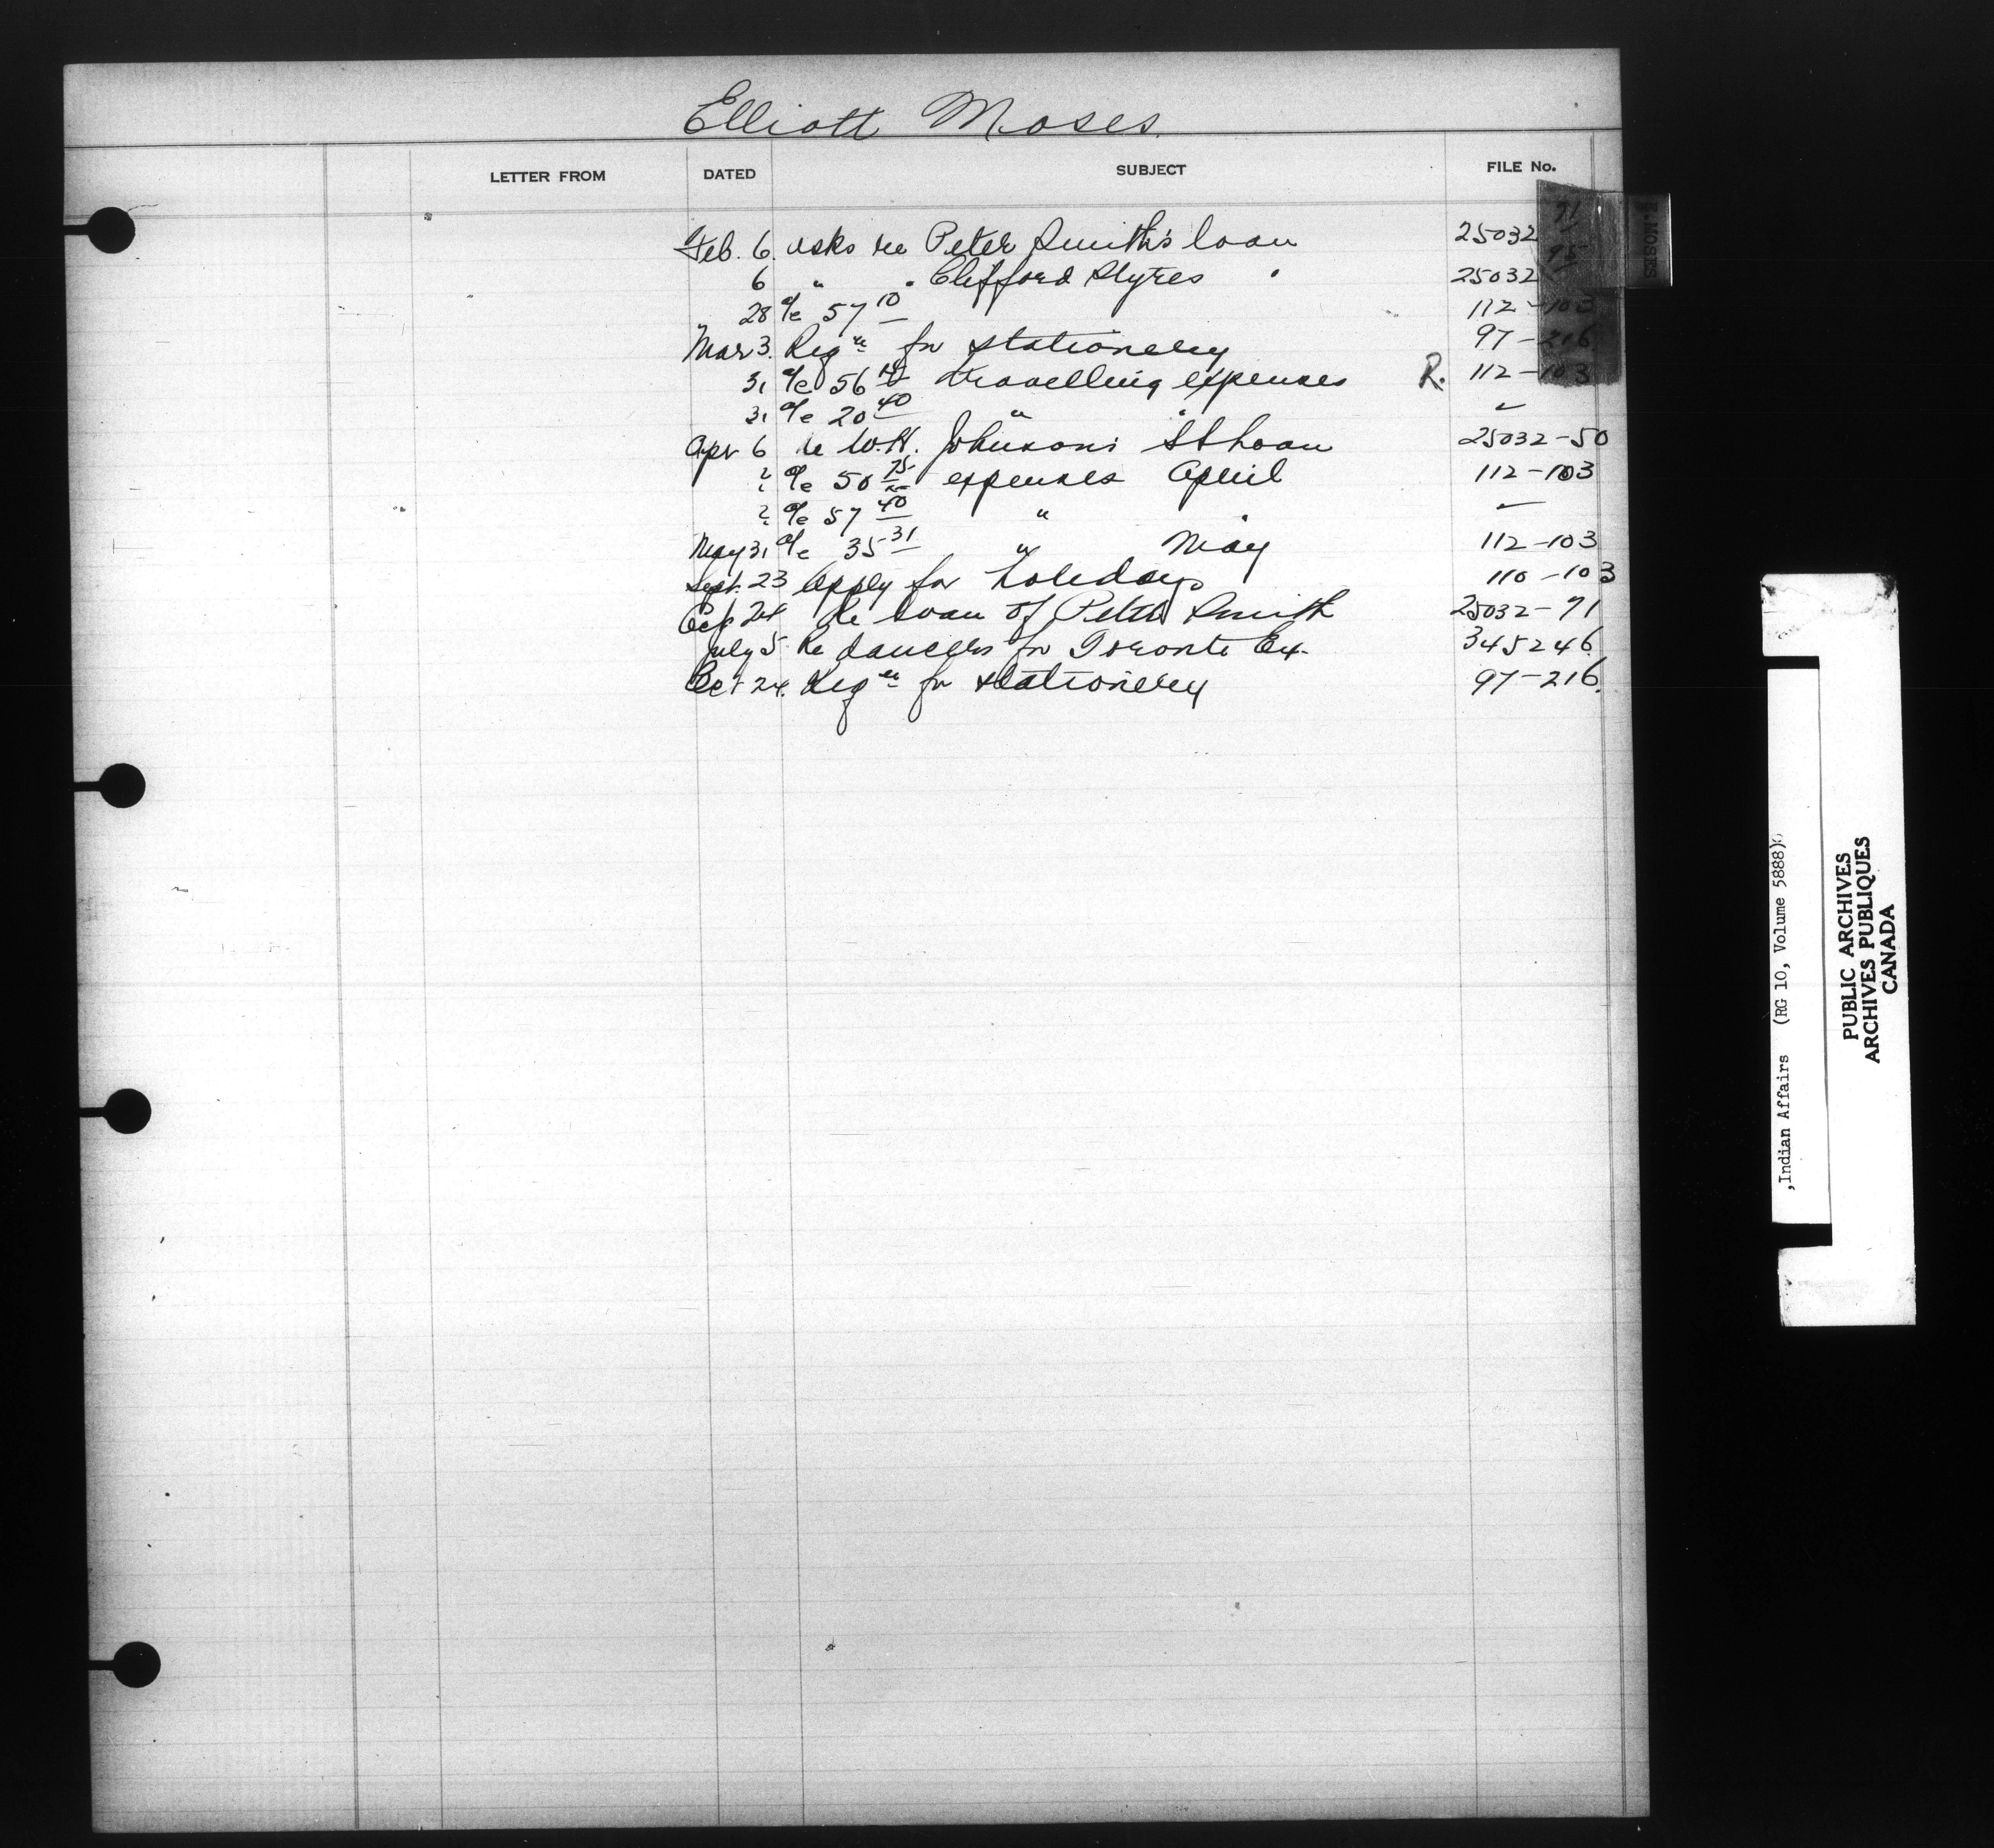 Elliott Moses.
LETTER FROM DATED SUBJECT FILE No.
Feb. 6. asks re Peter Smith's loan 25032 71
6 " " Clifford Styres " 25032 75
28 a/c 57 10 112-103
Mar 3. Reqn for stationery 97-216
31 a/c 56 travelling expenses R. 112-103
31 a/c 20 40 " "
Apr 6 re W.H. Johnsons SS Loan 25032-50
? a/c 50 75 expenses April 112-103
? a/c 57 40 " "
May 31 a/c 35 31 " May 112-103
Sept. 23 Apply for holidays 110-103
Oct 24 Re loan of Peter Smith 25032-71
July 5 Re dancers for Toronto Ex. 345246
Oct 24. Reqn for stationery 97-216.
E. MOSES
,Indian Affairs (RG 10, Volume 5888)
PUBLIC ARCHIVES
ARCHIVES PUBLIQUES
CANADA